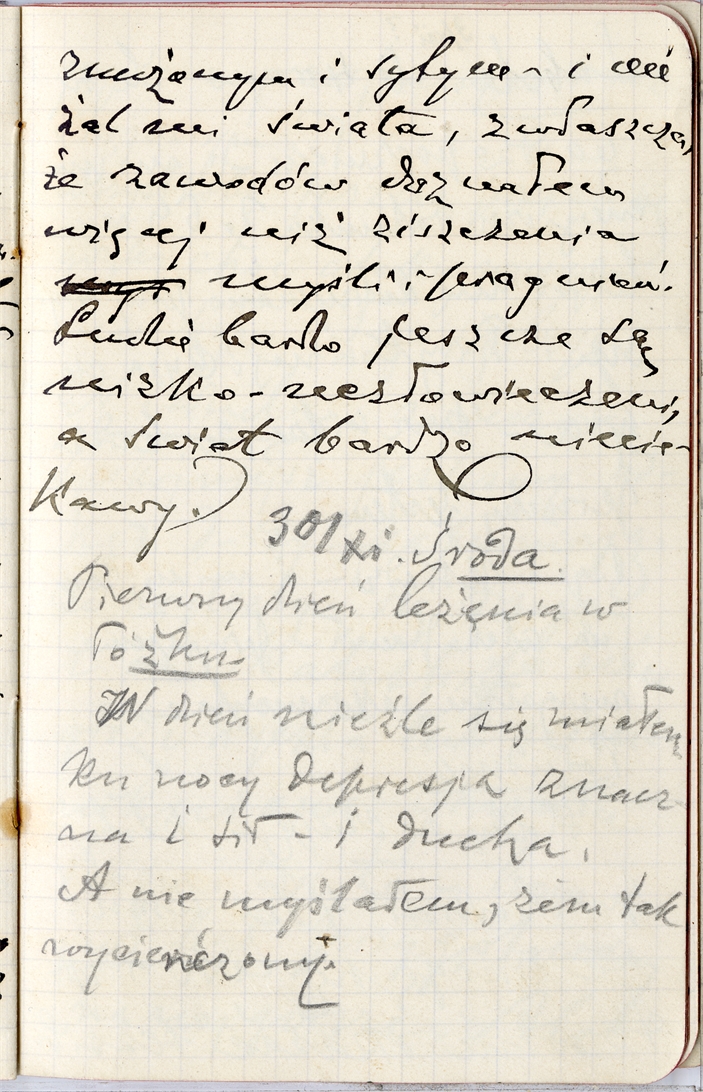 znużonym i sytym - i nie
żal mi świata, zwłaszcza,
że zawodów doznałem
więcej niż ziszczenia
myśli i pragnień.
Ludzie bardo jeszcze są
nizko - uczłowieczeni,
a świat bardzo niecie-
kawy.
30/XI. Środa.
Pierwszy dzień leżenia w
łóżku
W dzień nieźle się miałem
ku nocy depresja znacz-
na i sił - i ducha.
A nie myślałem, żem tak
wycieńczony.